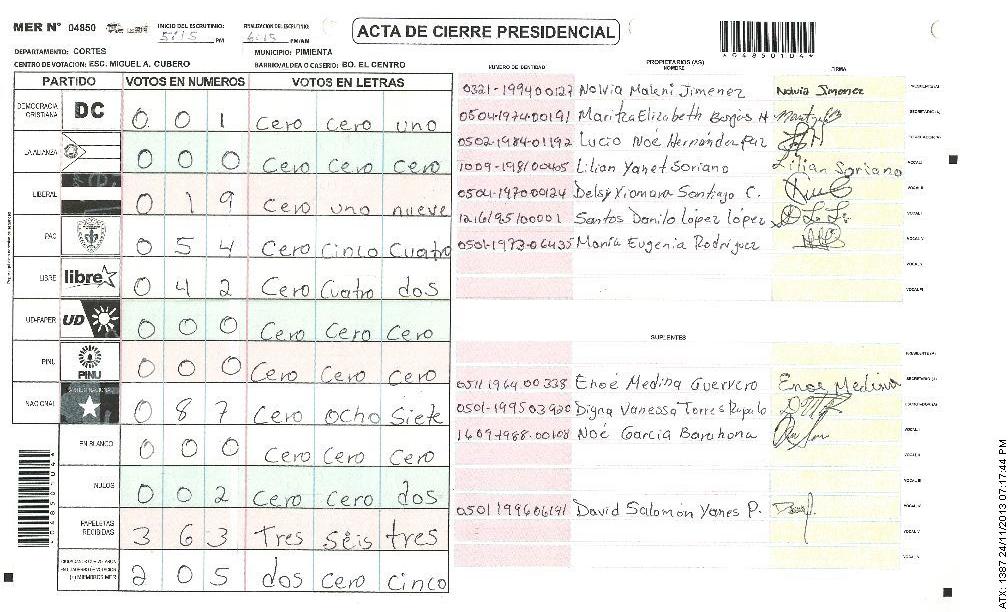 MER N° 04850
INICIO DEL ESCRUTINIO: 5:15 PM
FINALIZACION DEL ESCRUTINIO: 6:15 PM/AM
ACTA DE CIERRE PRESIDENCIAL
*04850104*
DEPARTAMENTO: CORTES
MUNICIPIO: PIMIENTA
CENTRO DE VOTACION: ESC. MIGUEL A. CUBERO
BARRIO/ALDEA O CASERIO: BO. EL CENTRO
PARTIDO VOTOS EN NUMEROS VOTOS EN LETRAS
DEMOCRACIA CRISTIANA DC 0 0 1 Cero Cero uno
LA ALIANZA 0 0 0 Cero Cero Cero
LIBERAL 0 1 9 Cero uno nueve
PAC 0 5 4 Cero Cinco Cuatro
LIBRE libre 0 4 2 Cero Cuatro dos
UD-FAPER UD 0 0 0 Cero Cero Cero
PINU PINU 0 0 0 Cero Cero Cero
NACIONAL 0 8 7 Cero Ocho Siete
EN BLANCO 0 0 0 Cero Cero Cero
NULOS 0 0 2 Cero Cero dos
PAPELETAS RECIBIDAS 3 6 3 Tres Seis tres
2 0 5 dos Cero Cinco
*04850104*
NUMERO DE IDENTIDAD PROPIETARIOS (AS) NOMBRE FIRMA
0321-199400127 Nolvia Maleni Jimenez Nolvia Jimenez
0504-1974-00191 Maritza Elizabeth Borjas H
0502-1984-01192 Lucio Noé Hernández Paz
1009-198100405 Lilian Yanet Soriano Lilian Soriano
0501-197000124 Delsy Xiomara Santiago C.
1216195100001 Santos Danilo López López
0501-1973-06435 María Eugenia Rodríguez
SUPLENTES
0511196400338 Enoé Medina Guerrero Enoe Medina
0501-199503900 Digna Vanessa Torres
1609-1988-00108 Noé Garcia Barahona
0501199606191 David Salomon Yanes P.
ATX: 1387 24/11/2013 07:17:44 PM